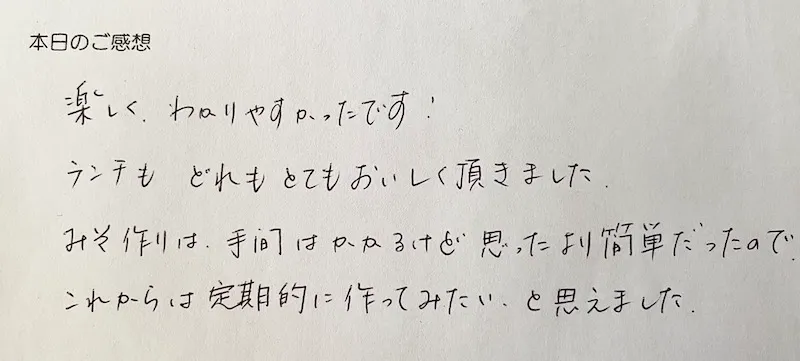 本日のご感想
楽しく、わかりやすかったです!
ランチも どれもとてもおいしく頂きました.
みそ作りは、手間はかかるけど 思ったより簡単だったので、
これからは定期的に作ってみたい、と思えました.